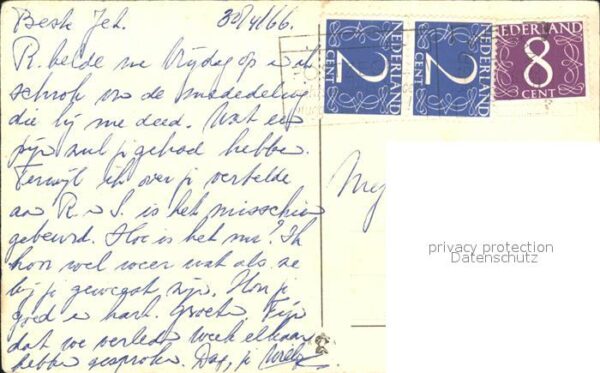 Beste Jet. 30/4/66.
R. belde me Vrijdag op en al
schrok van de mededeling
die hij me deed. Wat een
pijn zul je gehad hebben.
Terwijl ik over je vertelde
aan R. en S. is het misschien
gebeurd. Hoe is het nu? Ik
hoor wel weer wat als ze
bij je geweest zijn. Hou je
goed en hart. groeten. Fijn
dat we verleden week elkaar
hebben gesproken. Dag, je
Mej
NEDERLAND
2
CENT
NEDERLAND
2
CENT
NEDERLAND
8
CENT
privacy protection
Datenschutz